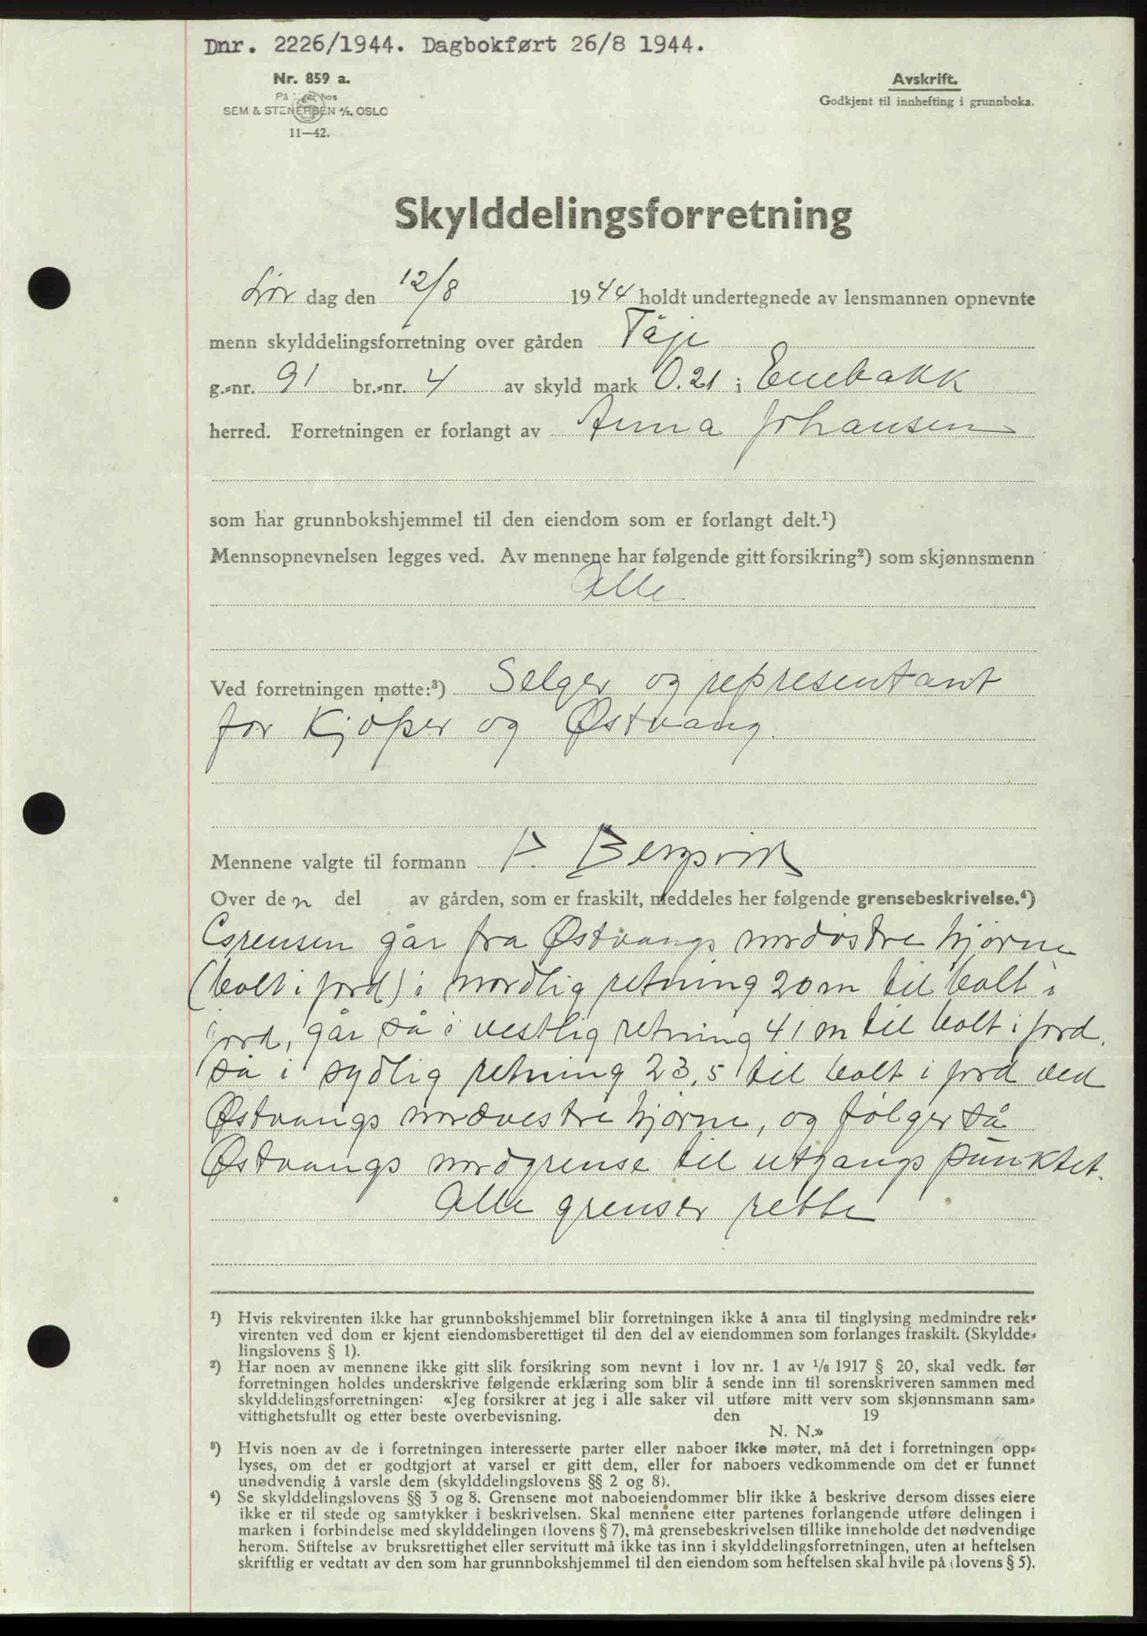 Dnr. 2226/1944. Dagbokført 26/8 1944.
Nr. 859 a.
På lager hos
SEM & STENERSEN A/S, OSLO
11—42.
Avskrift.
Godkjent til innhefting i grunnboka.
Skylddelingsforretning
Lør dag den 12/8 1944 holdt undertegnede av lensmannen opnevnte
menn skylddelingsforretning over gården Tåje
g.-nr. 91 br.-nr. 4 av skyld mark 0.21 i Enebakk
herred. Forretningen er forlangt av Anna Johansen
som har grunnbokshjemmel til den eiendom som er forlangt delt.¹)
Mennsopnevnelsen legges ved. Av mennene har følgende gitt forsikring²) som skjønnsmenn
Alle
Ved forretningen møtte:³) Selger og representant
for Kjøper og Østvang.
Mennene valgte til formann P. Bergsvik
Over den del av gården, som er fraskilt, meddeles her følgende grensebeskrivelse.⁴)
Grensen går fra Østvangs nordøstre hjørne
(bolt i jord) i nordlig retning 20 m til bolt i
jord, går så i vestlig retning 41 m til bolt i jord.
så i sydlig retning 23,5 til bolt i jord ved
Østvangs nordvestre hjørne, og følger så
Østvangs nordgrense til utgangspunktet.
Alle grenser rette
¹) Hvis rekvirenten ikke har grunnbokshjemmel blir forretningen ikke å anta til tinglysing medmindre rek-
virenten ved dom er kjent eiendomsberettiget til den del av eiendommen som forlanges fraskilt. (Skyldde-
lingslovens § 1).
²) Har noen av mennene ikke gitt slik forsikring som nevnt i lov nr. 1 av 1/6 1917 § 20, skal vedk. før
forretningen holdes underskrive følgende erklæring som blir å sende inn til sorenskriveren sammen med
skylddelingsforretningen: «Jeg forsikrer at jeg i alle saker vil utføre mitt verv som skjønnsmann sam-
vittighetsfullt og etter beste overbevisning. den 19
N. N.»
³) Hvis noen av de i forretningen interesserte parter eller naboer ikke møter, må det i forretningen opp-
lyses, om det er godtgjort at varsel er gitt dem, eller for naboers vedkommende om det er funnet
unødvendig å varsle dem (skylddelingslovens §§ 2 og 8).
⁴) Se skylddelingslovens §§ 3 og 8. Grensene mot naboeiendommer blir ikke å beskrive dersom disses eiere
ikke er til stede og samtykker i beskrivelsen. Skal mennene etter partenes forlangende utføre delingen i
marken i forbindelse med skylddelingen (lovens § 7), må grensebeskrivelsen tillike inneholde det nødvendige
herom. Stiftelse av bruksrettighet eller servitutt må ikke tas inn i skylddelingsforretningen, uten at heftelsen
skriftlig er vedtatt av den som har grunnbokshjemmel til den eiendom som heftelsen skal hvile på (lovens § 5).